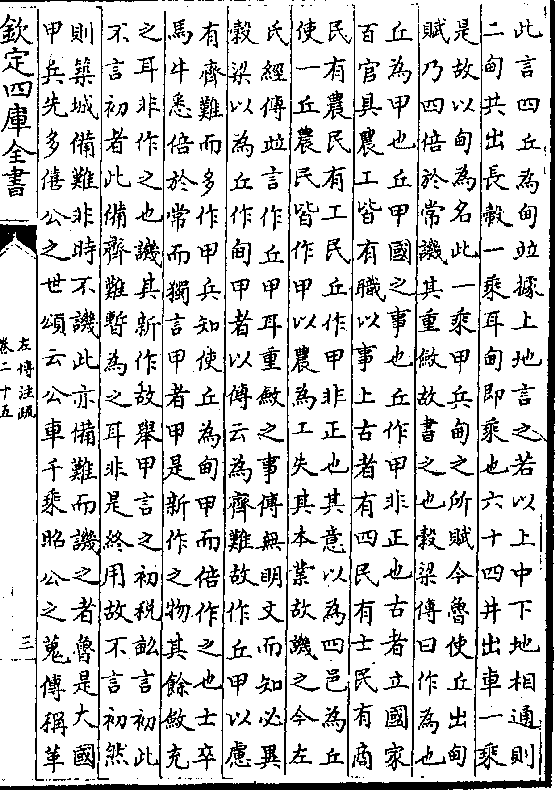 此言四丘為甸並據上地言之若以上中下地相通則
二甸共出長轂一乘耳甸即乘也六十四井出車一乘
是故以甸為名此一乘甲兵甸之所賦今魯使丘出甸
賦乃四倍於常譏其重斂故書之也穀梁傳曰作為也
丘為甲也丘甲國之事也丘作甲非正也古者立國家
百官具農工皆有職以事上古者有四民有士民有商
民有農民有工民丘作甲非正也其意以為四邑為丘
使一丘農民皆作甲以農為工失其本業故譏之今左
氏經傳並言作丘甲耳重斂之事傳無明文而知必異
穀梁以為丘作甸甲者以傳云為齊難故作丘甲以慮
有齊難而多作甲兵知使丘為甸甲而倍作之也士卒
馬牛悉倍於常而獨言甲者甲是新作之物其餘斂充
之耳非作之也譏其新作故舉甲言之初稅畝言初此
不言初者此備齊難暫為之耳非是終用故不言初然
則築城備難非時不譏此亦備難而譏之者魯是大國
甲兵先多僖公之世頌云公車千乘昭公之蒐傳稱革
欽定四庫全書
左傳注疏
卷二十五
三